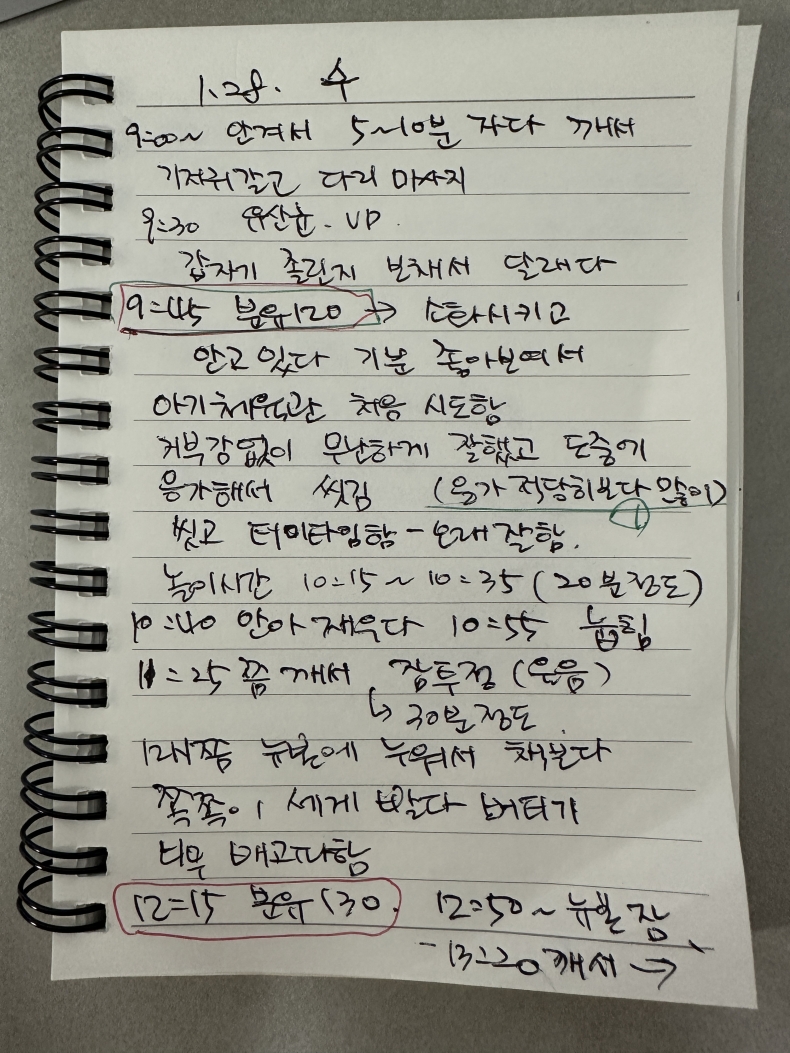 1.28. 수
9:00~ 안겨서 5~10분 자다 깨서
기저귀갈고 다리 마사지
9:30 유산균. VD.
갑자기 졸린지 보채서 달래다
9:45 분유120 → 소화시키고
안고 있다 기분 좋아보여서
아기체육관 처음 시도함
거부감없이 무난하게 잘했고 도중에
응가해서 씻김 (응가 적당히보다 많이)
①
씻고 터미타임함 - 오래 잘함.
놀이시간 10:15~10:35 (20분정도)
10:40 안아 재우다 10:55 눕힘
11:25쯤 깨서 잠투정 (웃음)
↳ 30분정도
12시쯤 뉴본에 누워서 책보다
쪽쪽이 세게 빨다 버티가
너무 배고파함
12:15 분유130. 12:50~ 뉴본 잠
- 13:20 깨서 →